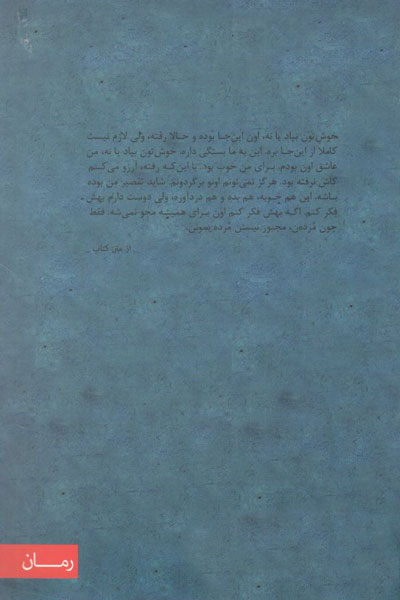 خوش‌تون بیاد یا نه، اون این‌جا بوده و حالا رفته، ولی لازم نیست
کاملا از این‌جا بره. این به ما بستگی داره. خوش‌تون بیاد یا نه، من
عاشق اون بودم. برای من خوب بود. با این‌که رفته، آرزو می‌کنم
کاش نرفته بود. هرگز نمی‌تونم اونو برگردونم. شاید تقصیر من بوده
باشه. این هم خوبه، هم بده و هم دردآوره، ولی دوست دارم بهش
فکر کنم. اگه بهش فکر کنم اون برای همیشه محو نمی‌شه. فقط
چون مُرده‌ن، مجبور نیستن مُرده بمونن.
از متن کتاب
رمـــان